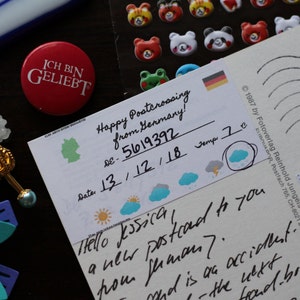 ICH BIN
GELIEBT
Happy Postcrossing
from Germany!
DE- 5619392
Date: 13 / 12 / 18 Temp: 7 °C
Hello Jessica,
a new postcard to you
from Germany.
card is an accident:
the next
© 1987 by Fotoverlag Reinhold Jungen